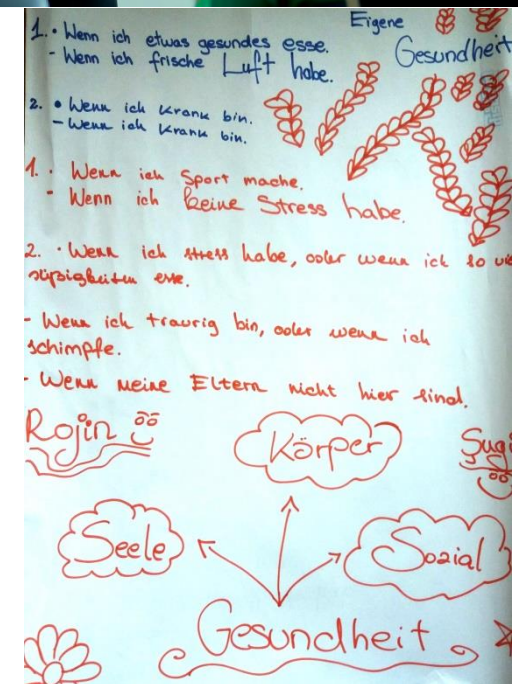 Eigene
Gesundheit
1. • Wenn ich etwas gesundes esse.
- Wenn ich frische Luft habe.
2. • Wenn ich Krank bin.
- Wenn ich Krank bin.
1. • Wenn ich Sport mache.
- Wenn ich keine Stress habe.
2. • Wenn ich stress habe, oder wenn ich so vie
süßigkeiten esse.
- Wenn ich traurig bin, oder wenn ich
schimpfe.
- Wenn meine Eltern nicht hier sind.
Rojin
Körper
Seele
Sozial
Gesundheit